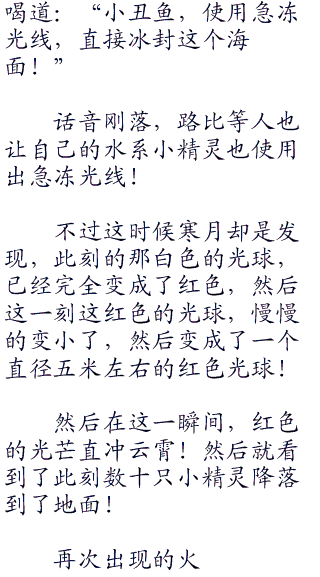 喝道：“小丑鱼，使用急冻
光线，直接冰封这个海
面！”
话音刚落，路比等人也
让自己的水系小精灵也使用
出急冻光线！
不过这时候寒月却是发
现，此刻的那白色的光球，
已经完全变成了红色，然后
这一刻这红色的光球，慢慢
的变小了，然后变成了一个
直径五米左右的红色光球！
然后在这一瞬间，红色
的光芒直冲云霄！然后就看
到了此刻数十只小精灵降落
到了地面！
再次出现的火